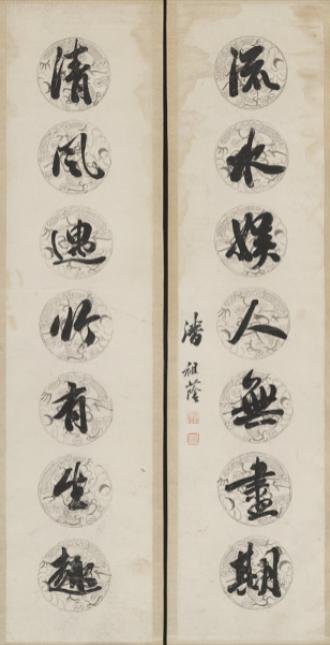 流水娛人無盡期
潘祖蔭
清風遇竹有生趣